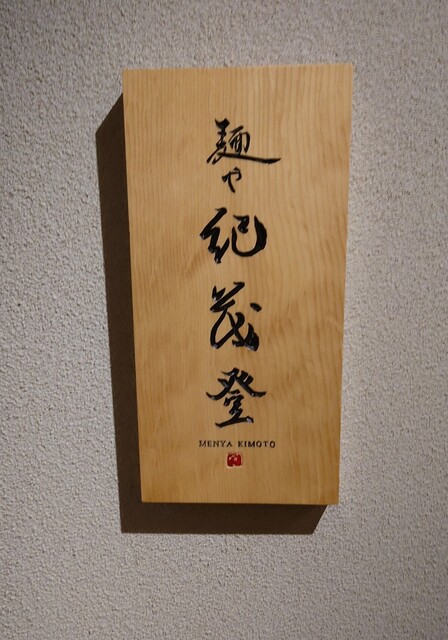 麺や紀茂登
MENYA KIMOTO